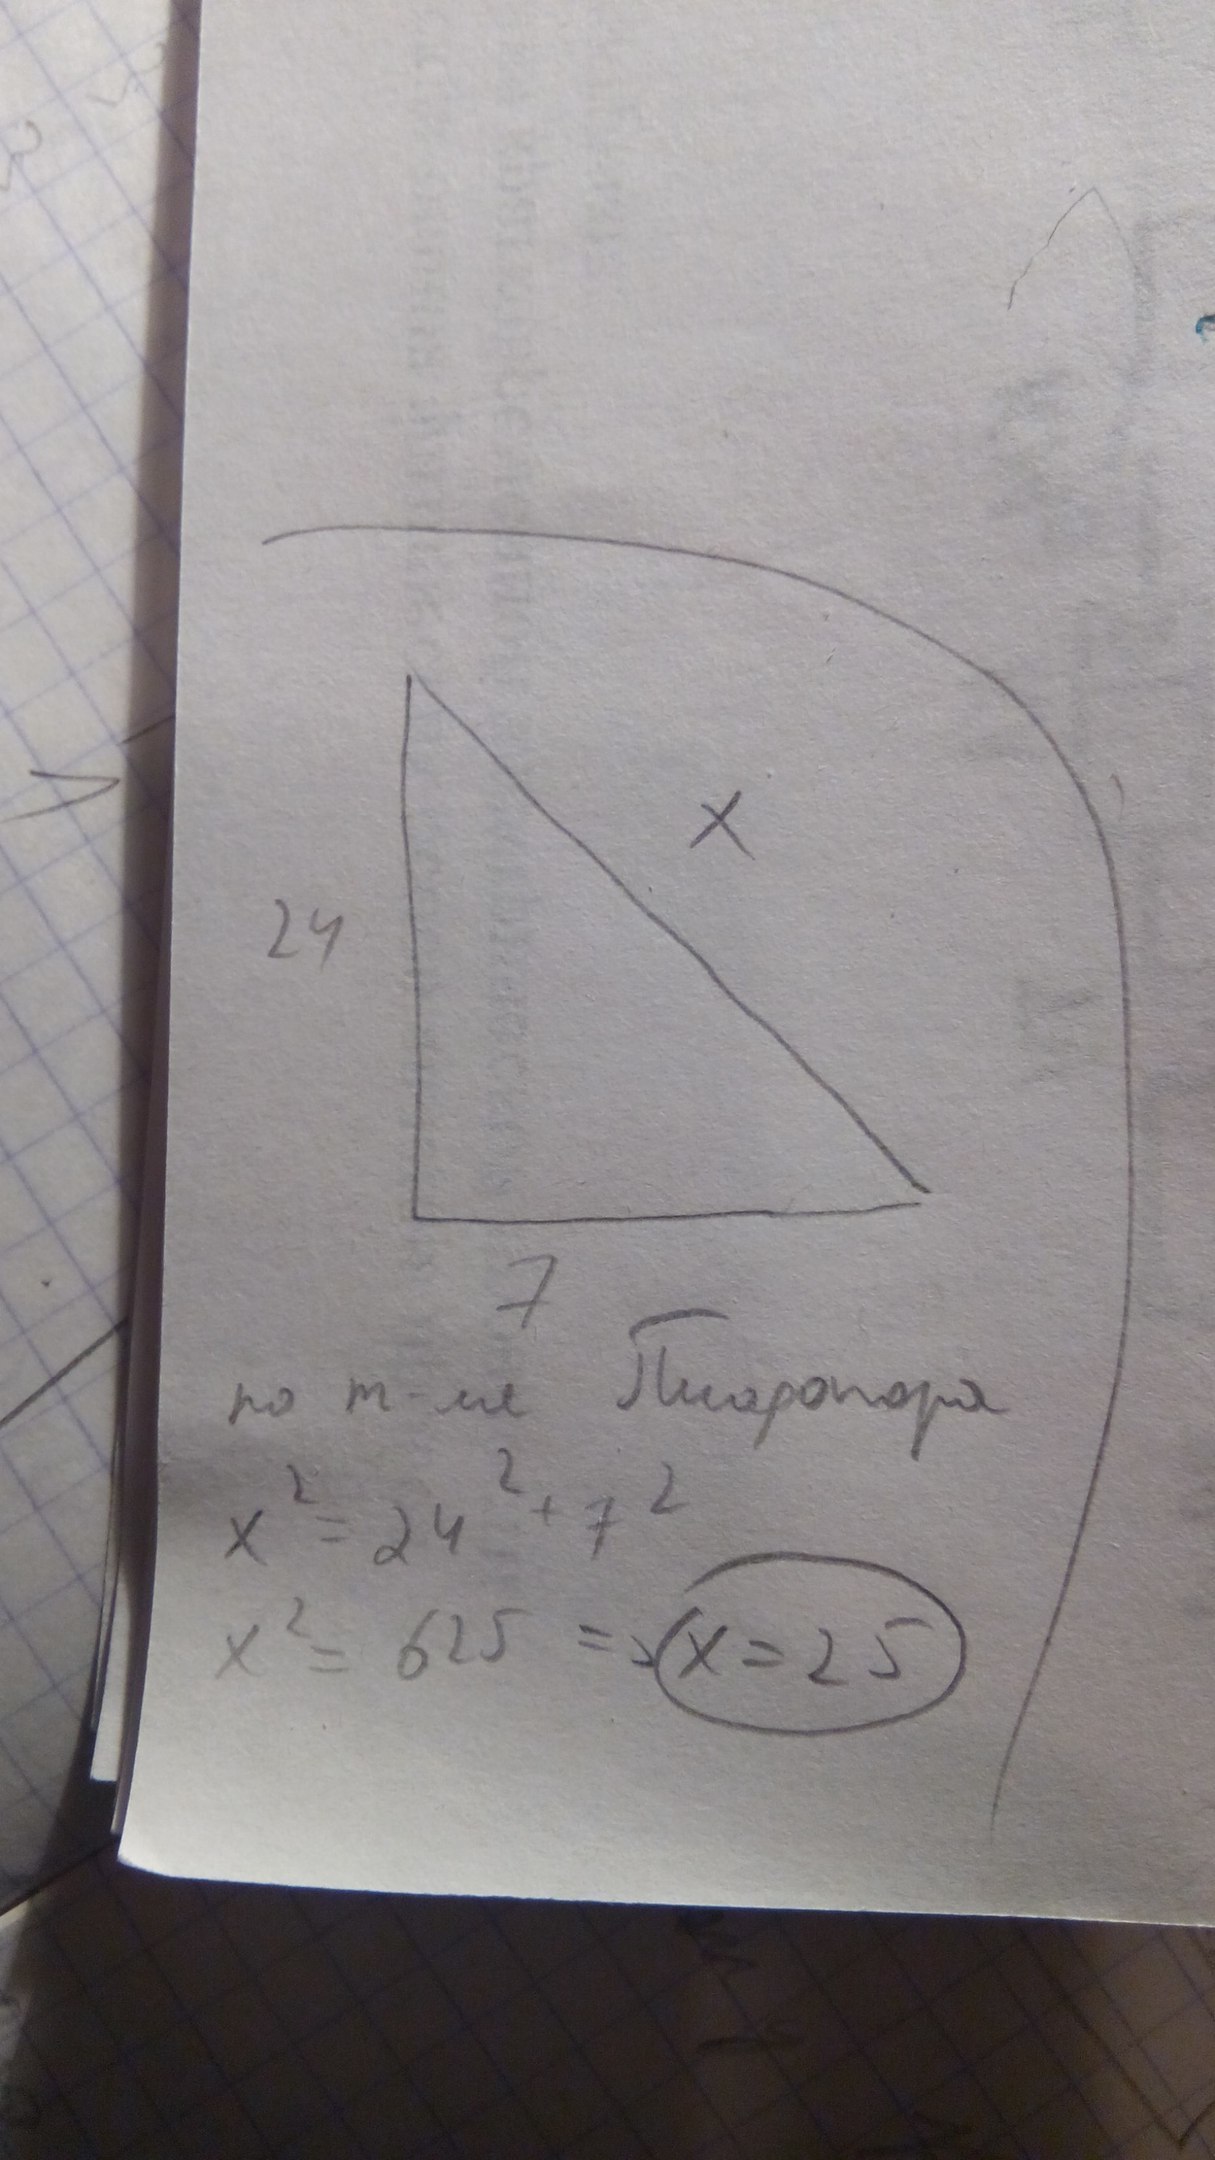 x
24
7
по т-ме Пифагора
x² = 24² + 7²
x² = 625 => x = 25